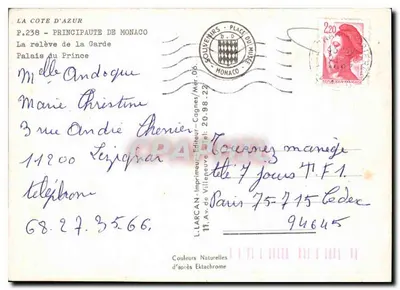 LA COTE D'AZUR
P.238 - PRINCIPAUTE DE MONACO
La relève de la Garde
Palais du Prince
Melle Andoque
Marie Christine
3 rue André Chenier
11200 Lezignan
téléphone
68.27.35.66.
SOUVENIRS - PLACE DU MUSEE
MONACO
2,20
L. LARCAN - Imprimeur - Editeur - Cagnes/Mer 06
11, Av. de Villeneuve - Tél. 20-98-22
Tournez manège
télé 7 jours T.F1.
Paris 75-715 Cedex
94645
Couleurs Naturelles
d'après Ektachrome